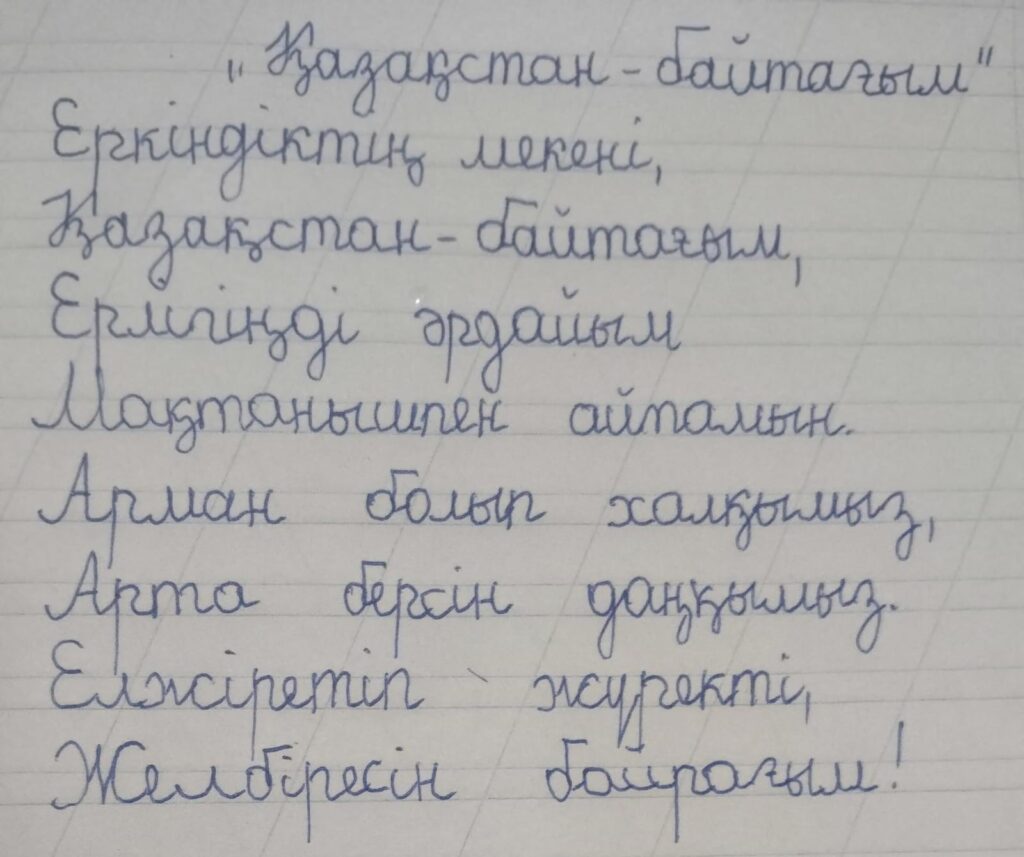 „Қазақстан - байтағым"
Еркіндіктің мекені,
Қазақстан - байтағым,
Ерлігіңді әрдайым
Мақтанышпен айтамын.
Арман болып халқымыз,
Арта берсін даңқымыз.
Елжіретіп жүректі,
Желбіресін байрағым!